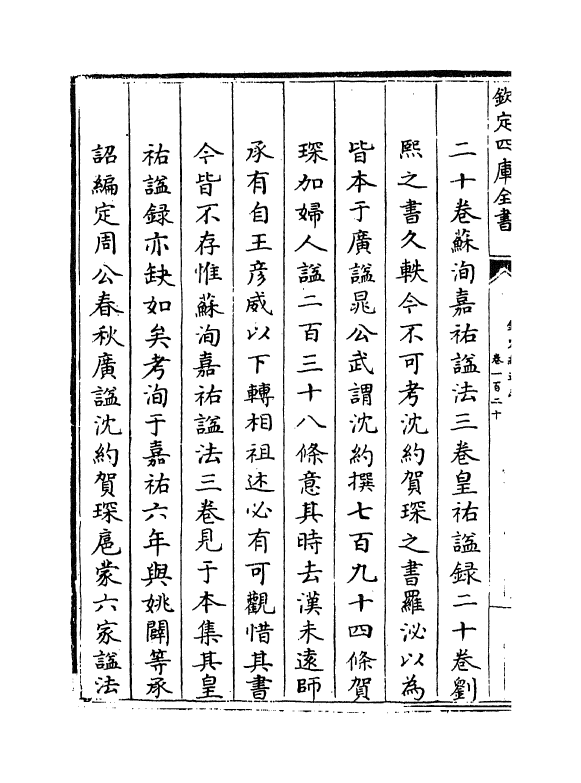 欽定四庫全書
卷一百二十
二十卷蘇洵嘉祐諡法三卷皇祐諡録二十卷劉
熙之書久軼今不可考沈約賀琛之書羅泌以為
皆本于廣諡晁公武謂沈約撰七百九十四條賀
琛加婦人諡二百三十八條意其時去漢未遠師
承有自王彦威以下轉相祖述必有可觀惜其書
今皆不存惟蘇洵嘉祐諡法三卷見于本集其皇
祐諡録亦缺如矣考洵于嘉祐六年與姚闢等承
詔編定周公春秋廣諡沈約賀琛扈蒙六家諡法